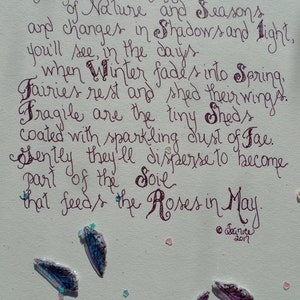 of Nature and Seasons
and changes in Shadows and Light,
you'll see, in the days
when Winter fades into Spring,
Fairies rest and shed their wings.
Fragile are the tiny Sheds
coated with sparkling dust of Fae.
Gently they'll disperse to become
part of the Soil
that feeds the Roses in May.
2017